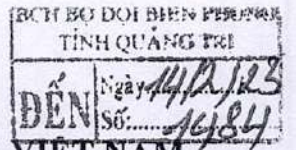 BCH BỘ ĐỘI BIÊN PHÒNG
TỈNH QUẢNG TRỊ
ĐẾN
Ngày 14/2/23
Số:.......1484
VIỆT NAM